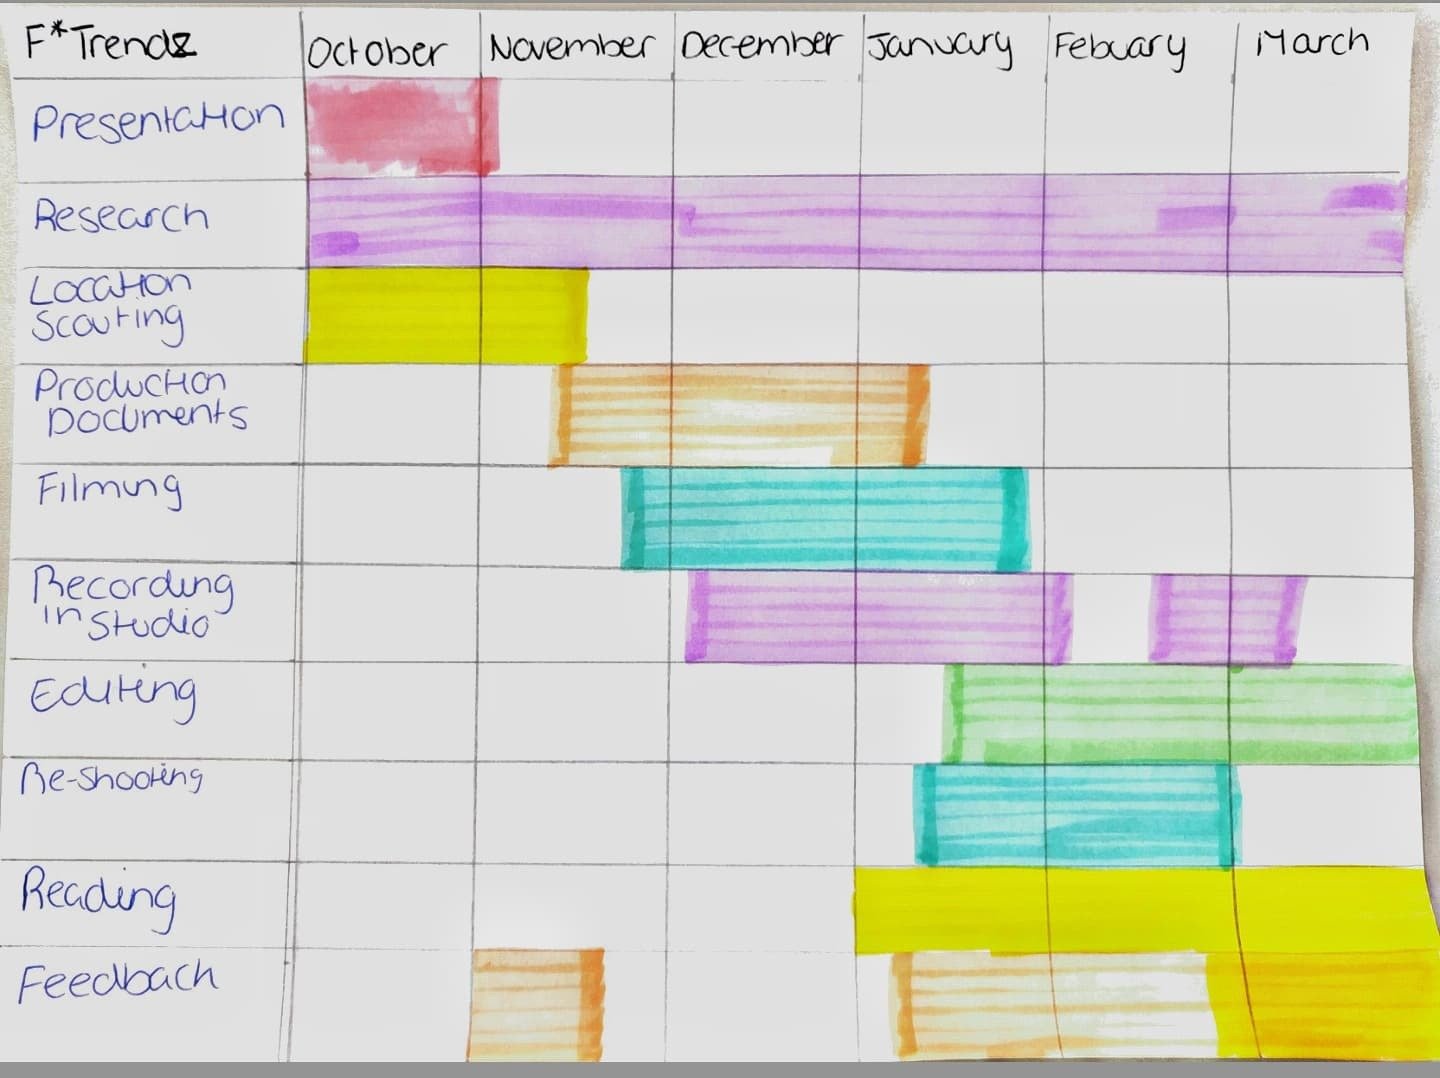 F*Trendz October November December January Febuary March
Presentation
Research
Location
Scouting
Production
Documents
Filming
Recording
in Studio
Editing
Re-shooting
Reading
Feedback